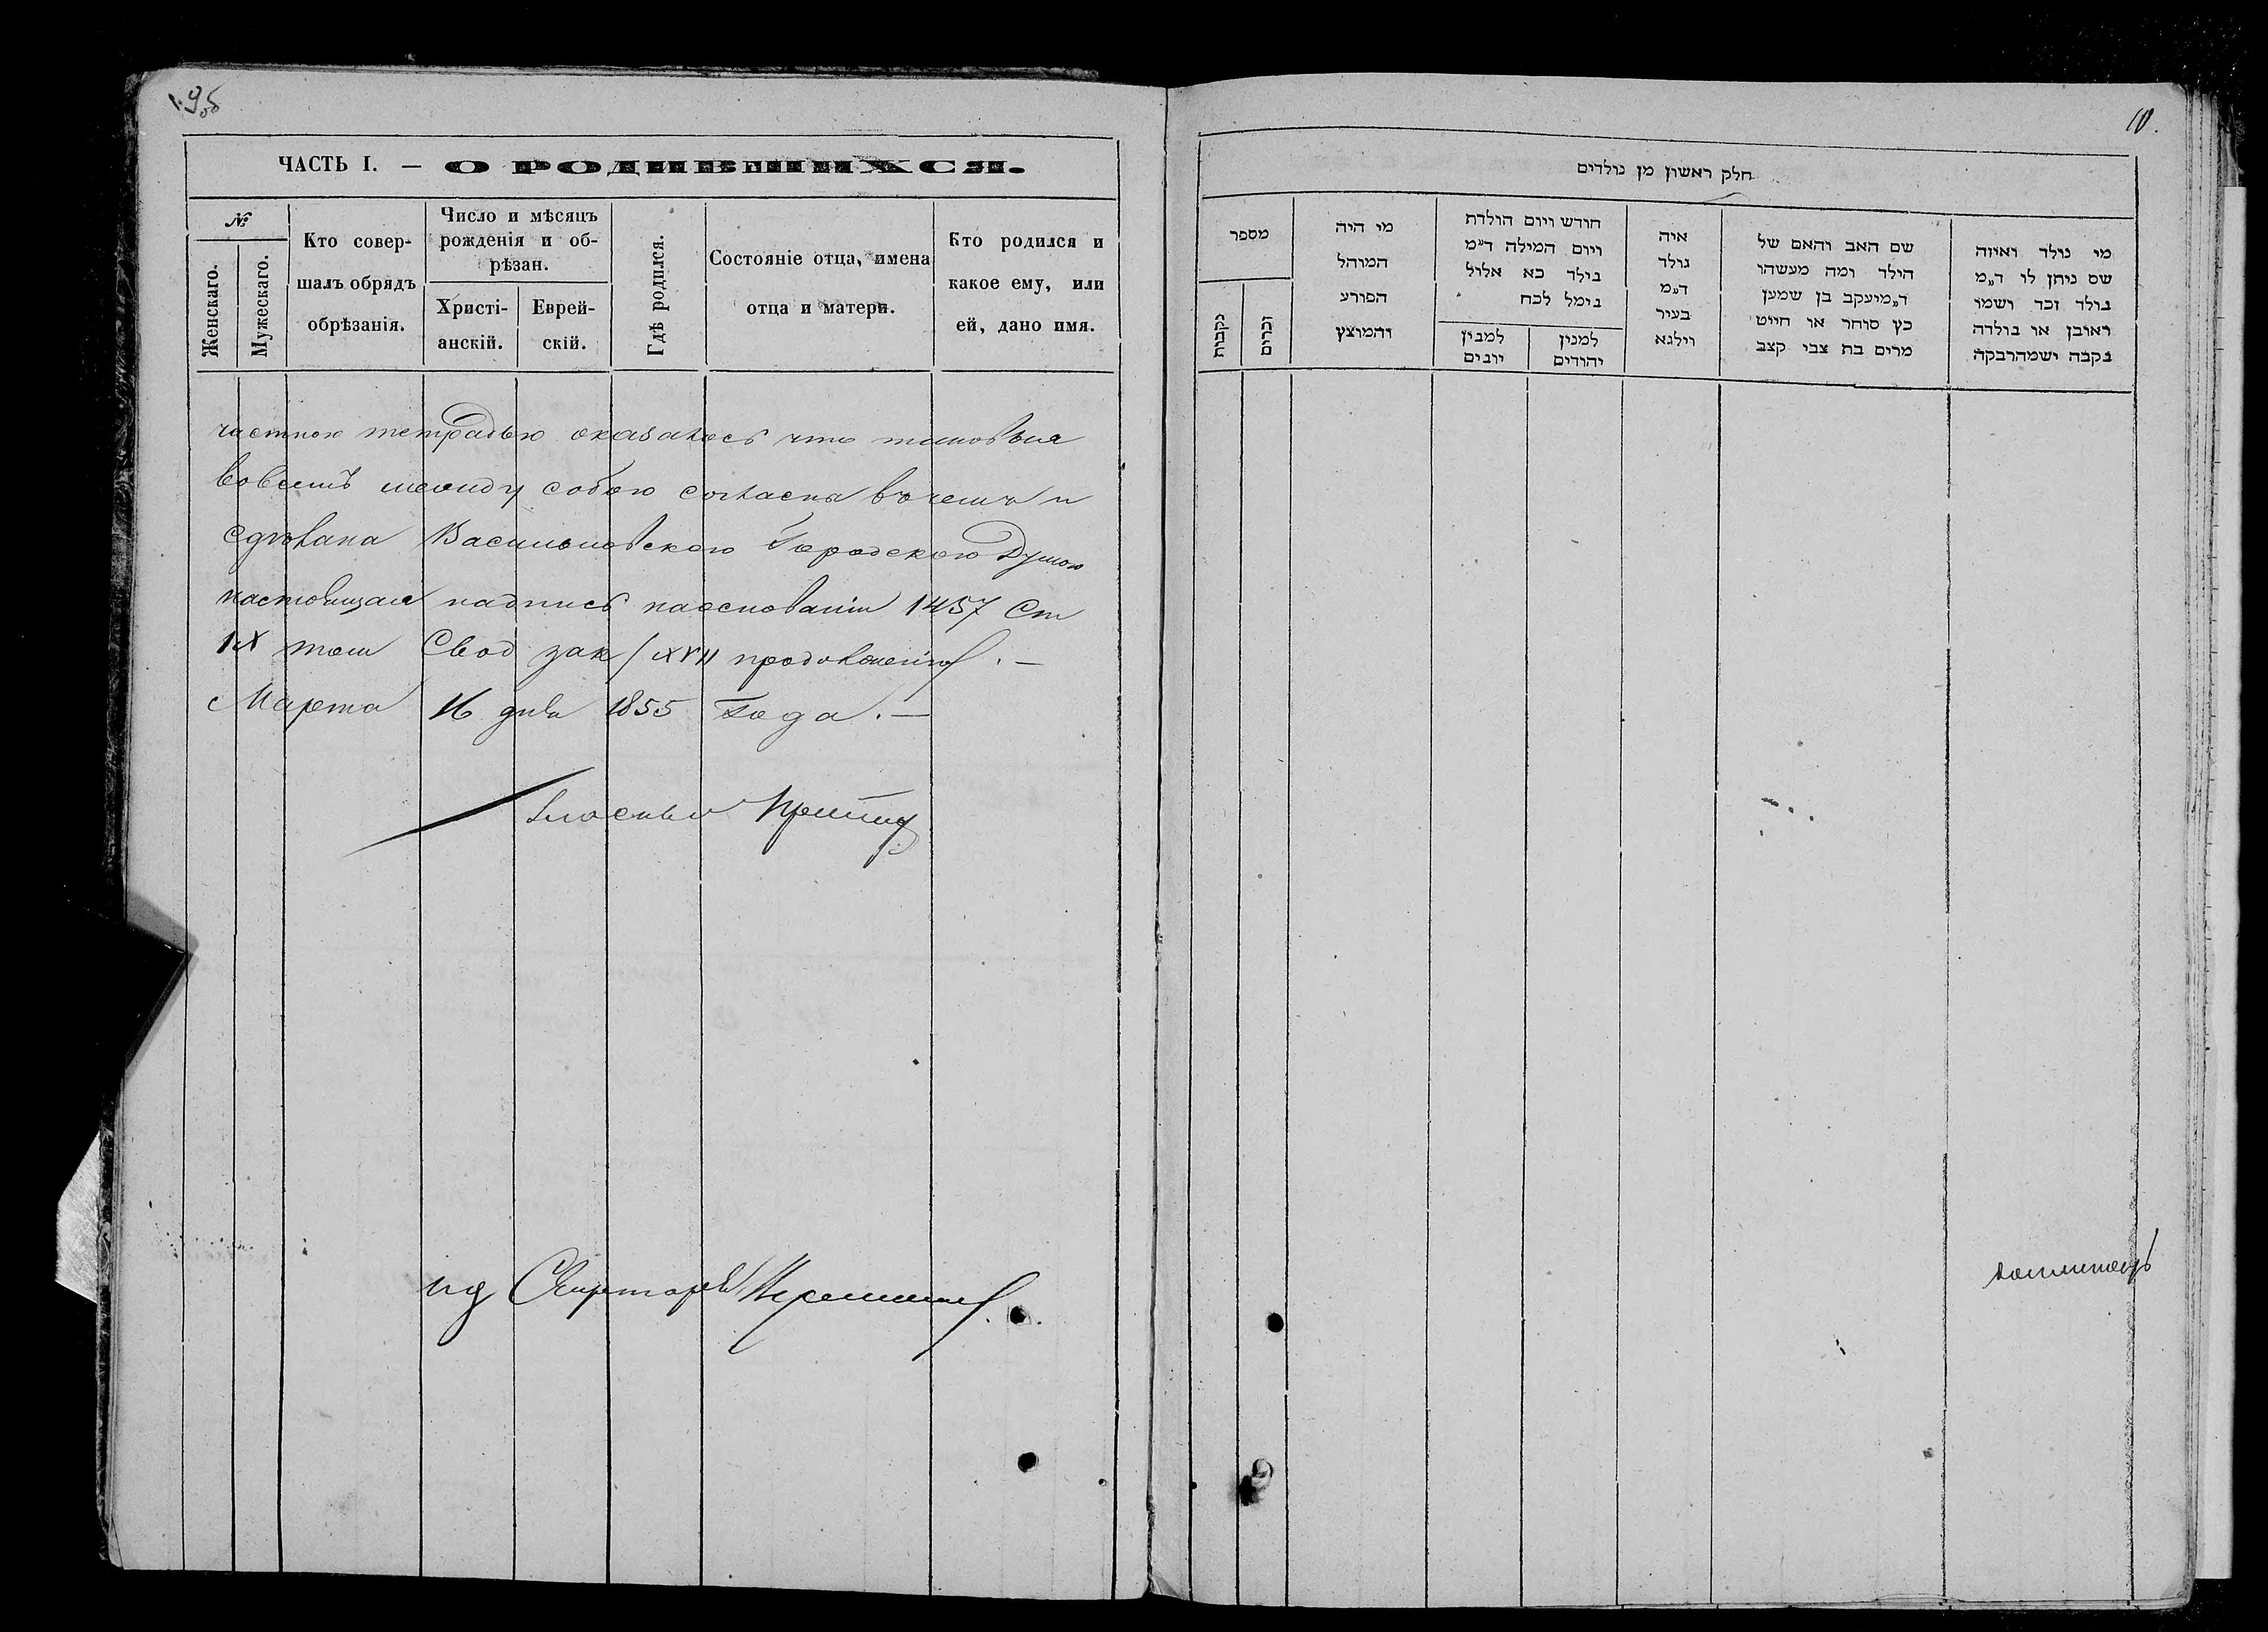 9об
ЧАСТЬ I. — О РОДИВШИХСЯ.
№
Женскаго.
Мужескаго.
Кто совер-
шалъ обрядъ
обрѣзанія.
Число и мѣсяцъ
рожденія и об-
рѣзан.
Христі-
анскій.
Еврей-
скій.
Гдѣ родился.
Состояніе отца, имена
отца и матери.
Кто родился и
какое ему, или
ей, дано имя.
частною тетрадью оказалось что таковыя
вовсемъ между собою согласны въ чемъ и
сдѣлана Васильковскою Городскою Думою
настоящая надпись наосновании 1457 Ст
IX том Свод зак / XVII продолжению / . —
Марта 16 дня 1855 Года . —
ид Секретаря
10.
חלק ראשון מן נולדים
מספר
נקבות
זכרים
מי היה
המוהל
הפורע
והמוצץ
חודש ויום הולדת
ויום המילה ד״מ
בילד כא אלול
בימל לכח
למנין
יונים
למנין
יהודים
איה
נולד
ד״מ
בעיר
וילנא
שם האב והאם של
הילד ומה מעשהו
ד״מ יעקב בן שמעון
כץ סוחר או חייט
מרים בת צבי קצב
מי נולד ואיזה
שם ניתן לו ד״מ
נולד זכר ושמו
ראובן או נולדה
נקבה ושמה רבקה